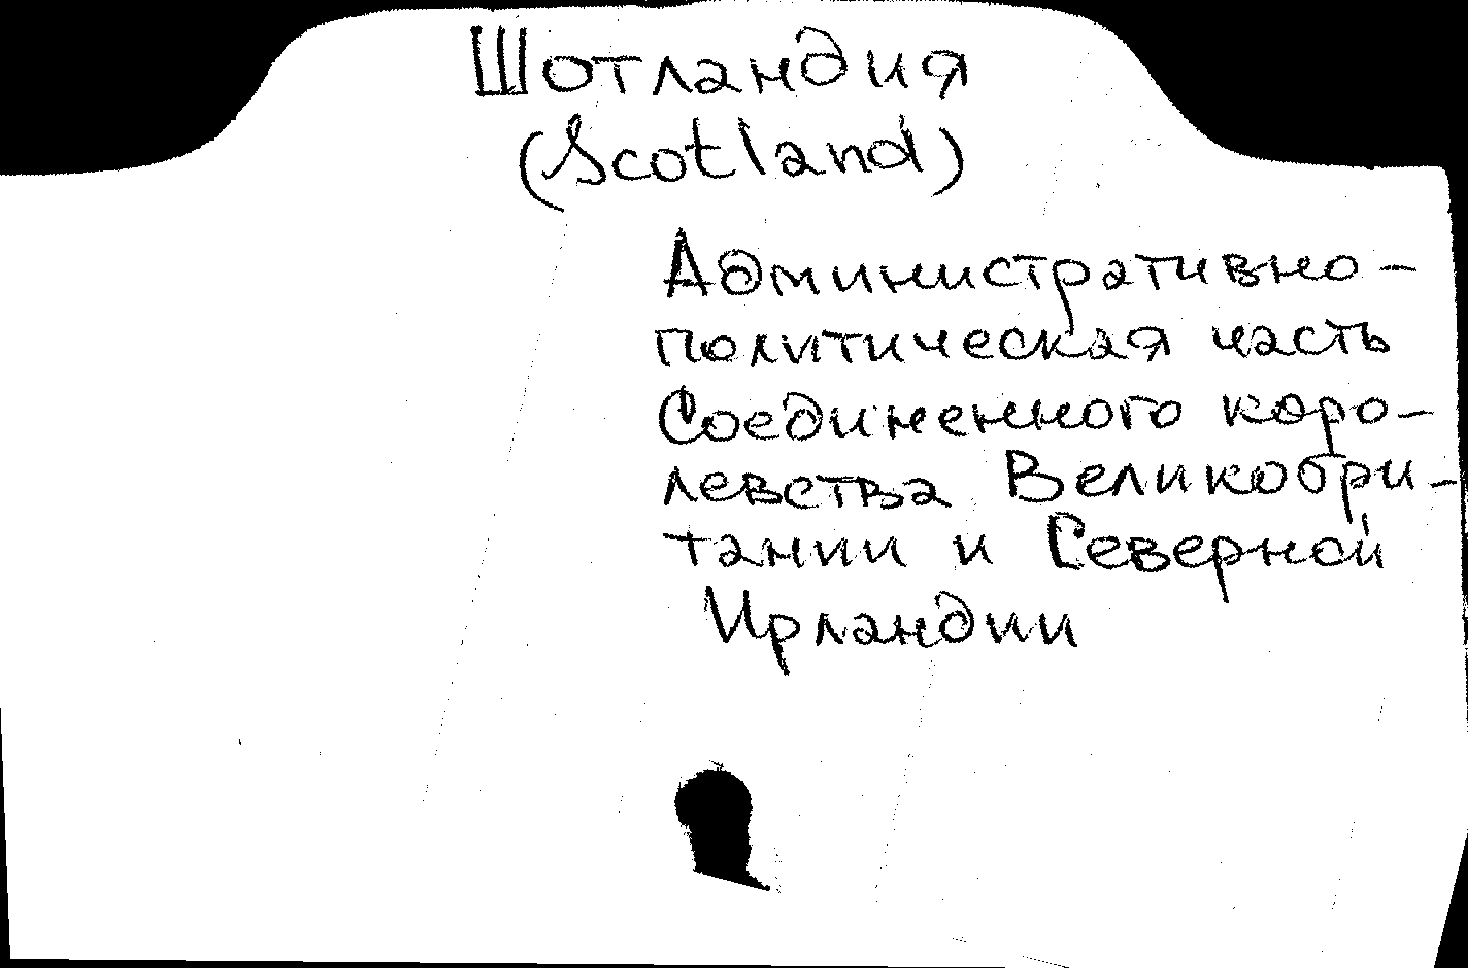 Шотландия
(Scotland)
Административно-
политическая часть
Соединенного коро-
левства Великобри-
тании и Северной
Ирландии